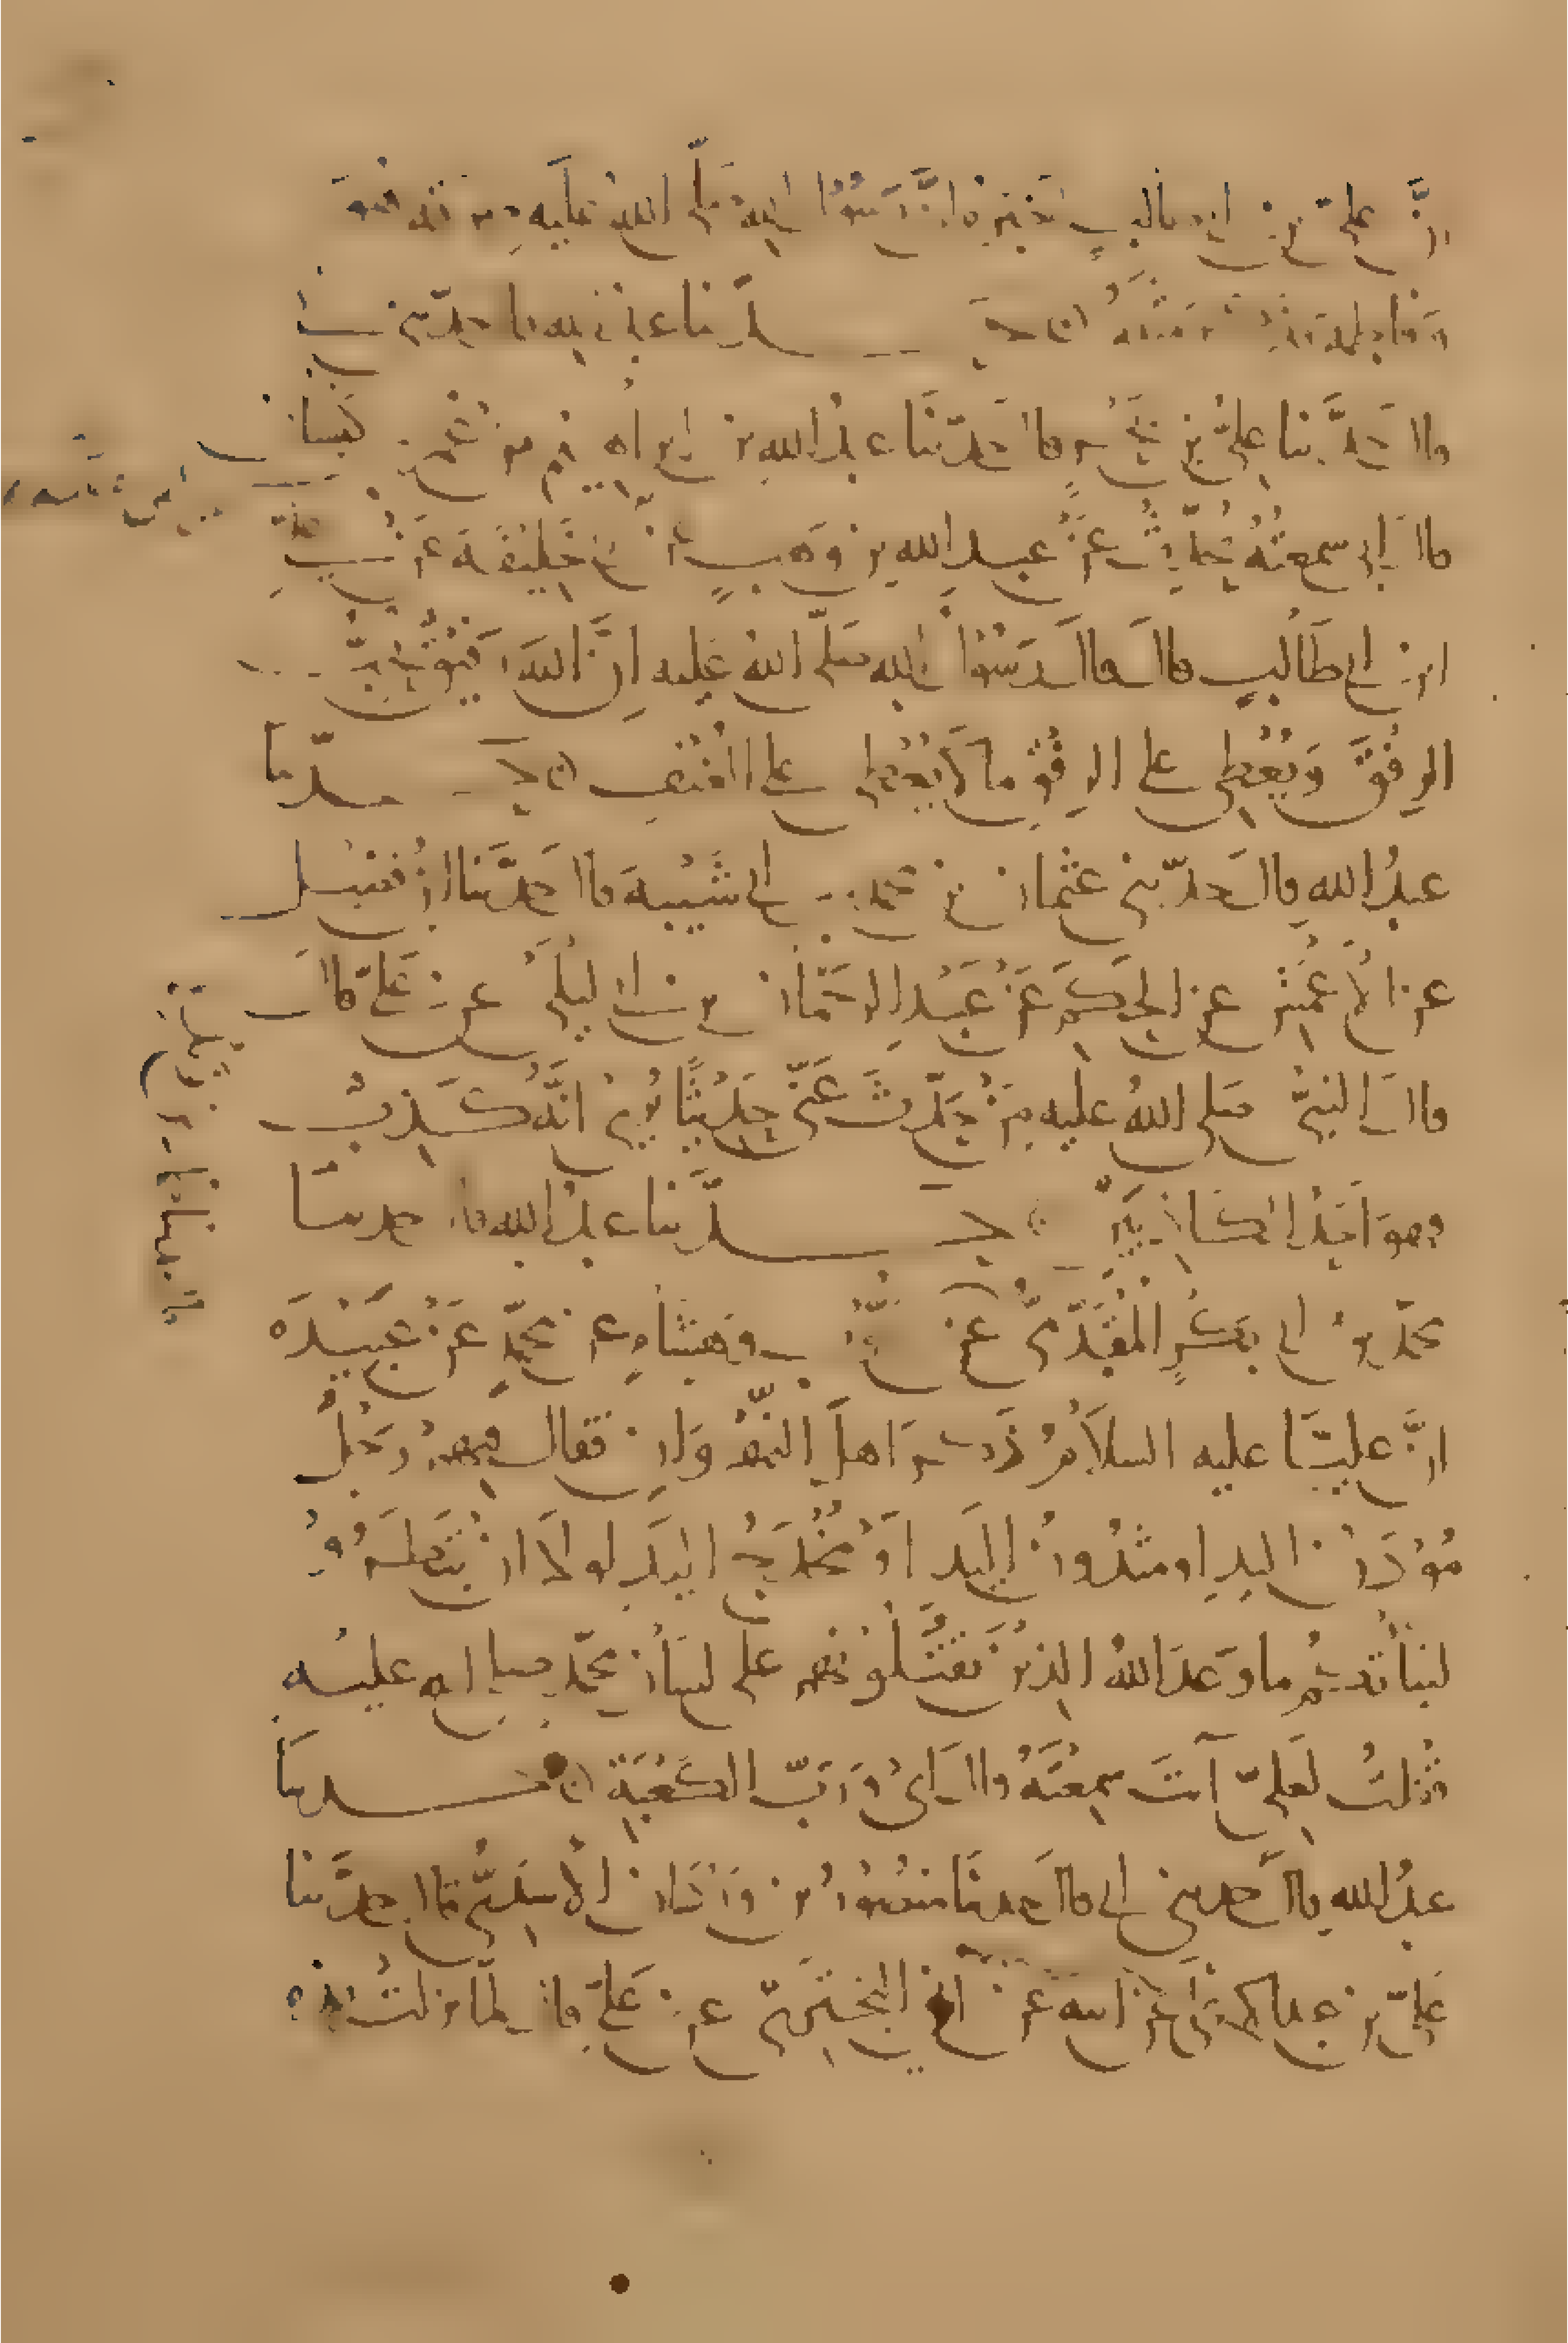 انَّ علىّ بن ابى طالب اخبره انَّ رسول الله صلّى الله عليه طرقه هُوَ
وَفاطمة حدّثنا عبد الله قال حدّثنى ابى
قال حَدَّثنا علىُّ بن بَحْرٍ قال حَدّثنا عبدُ الله بن ابراهيم بن عُمر بن كيسان
قال ابى سمعتُهُ يُحدّث عَنْ عبد الله بن وَهبٍ عن ابى خَليفَة عَنْ علىّ
ابن ابى طَالب قال قال رَسُولُ الله صَلّى اللهُ عَليه اِنَّ اللهَ رَفيْقٌ يُحِبُّ
الرِفْقَ وَيُعْطِى على الرِفْقِ ما لَا يُعْطِى على العُنْفِ حدّثنا
عبدُ الله قال حَدّثنى عثمان بن محمد بن ابى شَيْبَة قال حَدَّثنا ابنُ فضيْل
عن الأَعْمش عن الحَكَم عَنْ عَبْد الرحَمان بن ابى ليْلَى عن عَلىّ قال
قال النبىُّ صَلى اللهُ عليه مَنْ حَدَّث عَنّى حَديْثًا يُرى انَّهُ كَذِبٌ
فهوَ اَحَدُ الكَاذِبِيْنَ حَدَّثنا عبدُ الله قال حدثنا
محمّد بن ابى بَكْرٍ المُقَدَّمىُّ عن وَهشام عن محمّدٍ عَنْ عَبِيْدَه
انَّ عليًّا عليه السلاَمُ ذَكر اَهلَ النَّهْرَوَان فقال فيهمْ رَجُلٌ
مُوْدَنُ اليدِ او مثدُونُ اليَد اَوْ مُخْدَجُ اليَد لولا ان تَبْطَرُوا
لنبأتُكم ما وَعدَ اللهُ الذينَ يَقتُلُونهم على لسَان محمّد صلى الله عليه
قُلتُ لعلىّ آنتَ سمعْتَهُ قال اىْ وَرَبّ الكَعْبَةِ حدثنا
عبدُ الله قال حدثنى ابى قال حَدثنا منصُورُ بن وَرْدَان الأَسَدىُّ قال حدَّثنا
علىّ بن عبد الاعلى عَنْ ابيه عَنْ ابى البَخْتَرىّ عن عَلىّ قال لمَّا نزلتْ هذه